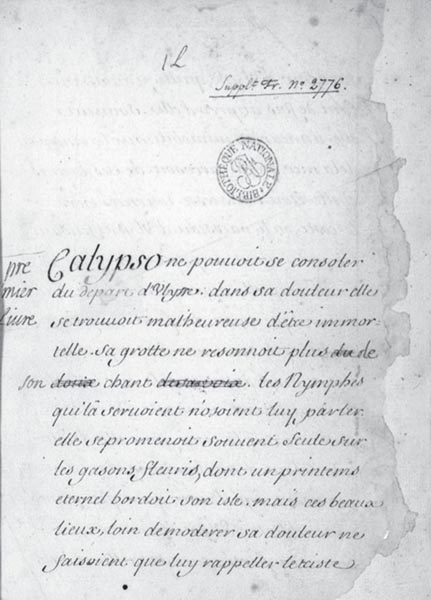 1 L
Suppl. Fr. No 2776.
BIBLIOTHEQUE NATIONALE
pre
mier
livre
Calypso ne pouvoit se consoler
du depart d'Ulysse. dans sa douleur elle
se trouvoit malheureuse d'être immor
telle. sa grotte ne resonnoit plus du de
son doux chant de sa voix. les Nymphes
qui la servoient n'osoient luy parler
elle se promenoit souvent seule sur
les gasons fleuris, dont un printems
eternel bordoit son isle. mais ces beaux
lieux, loin de moderer sa douleur ne
faisoient que luy rappeller le triste